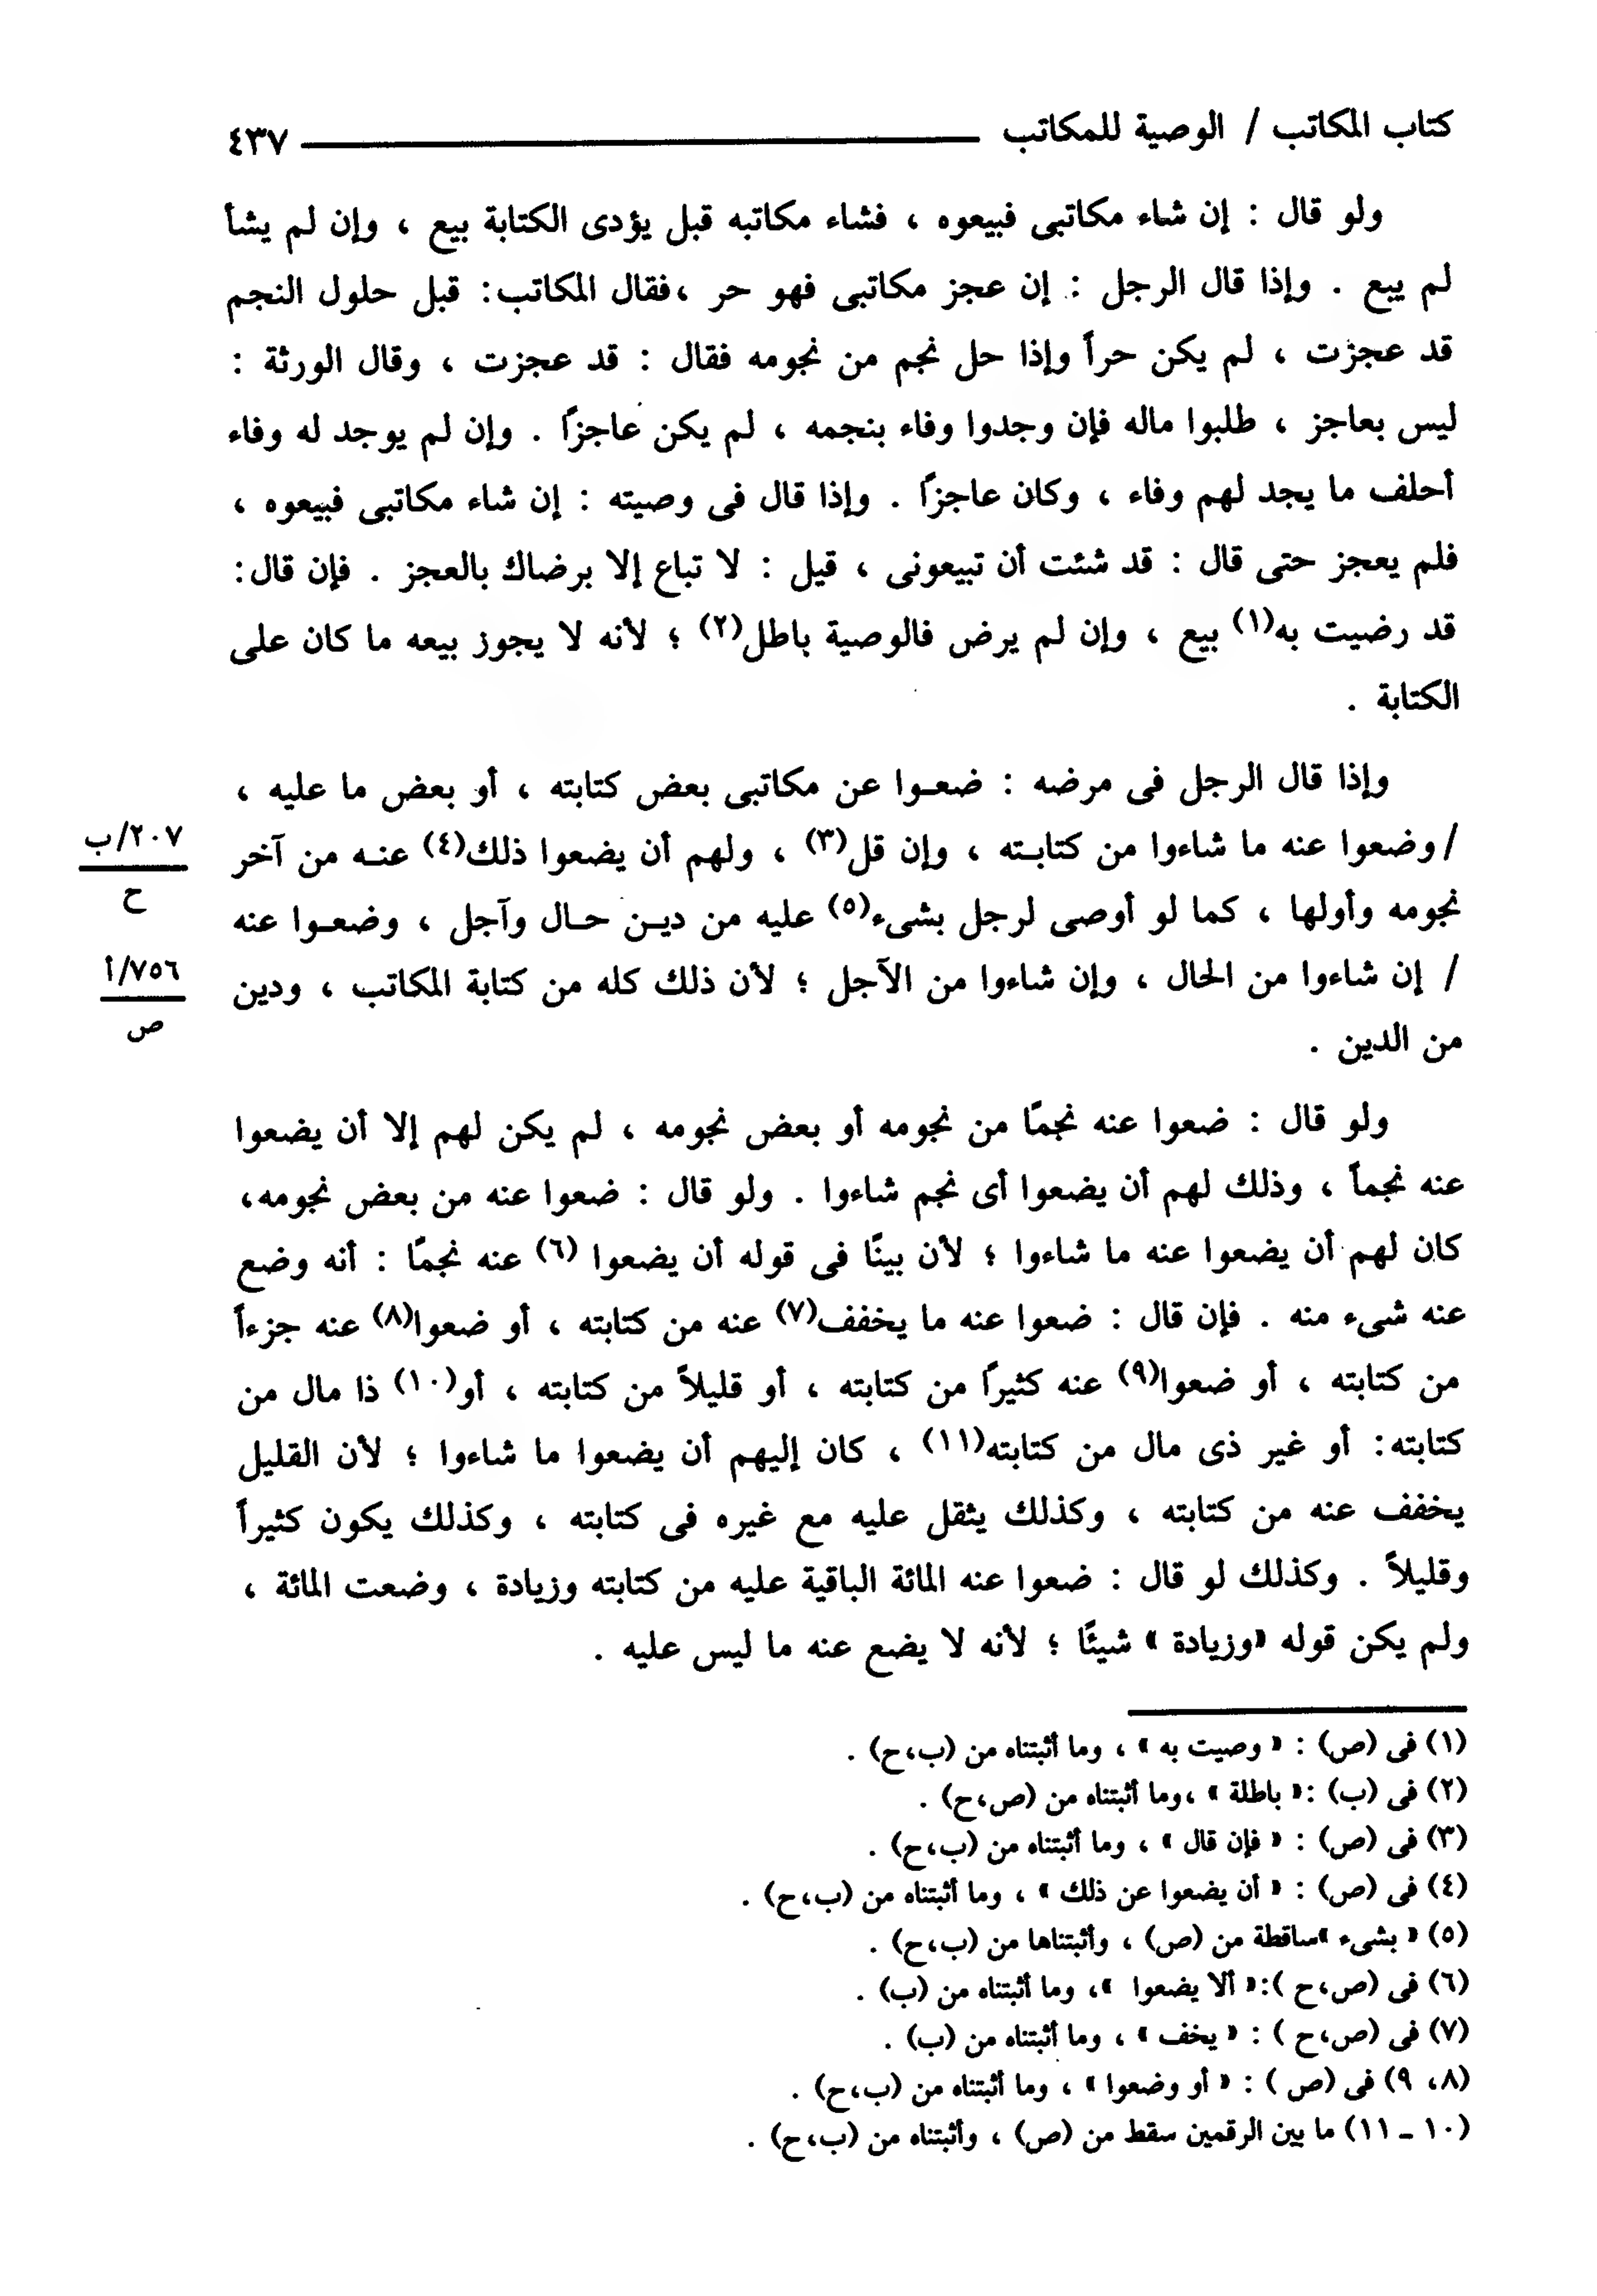 كتاب المكاتب / الوصية للمكاتب ــــــ ٤٣٧
ولو قال : إن شاء مكاتبى فبيعوه ، فشاء مكاتبه قبل يؤدى الكتابة بيع ، وإن لم يشأ
لم يبع . وإذا قال الرجل : إن عجز مكاتبى فهو حر ،فقال المكاتب: قبل حلول النجم
قد عجزت ، لم يكن حراً وإذا حل نجم من نجومه فقال : قد عجزت ، وقال الورثة :
ليس بعاجز ، طلبوا ماله فإن وجدوا وفاء بنجمه ، لم يكن عاجزًا . وإن لم يوجد له وفاء
أحلف ما يجد لهم وفاء ، وكان عاجزًا . وإذا قال فى وصيته : إن شاء مكاتبى فبيعوه ،
فلم يعجز حتى قال : قد شئت أن تبيعونى ، قيل : لا تباع إلا برضاك بالعجز . فإن قال:
قد رضيت به(١) بيع ، وإن لم يرض فالوصية باطل(٢) ؛ لأنه لا يجوز بيعه ما كان على
الكتابة .
وإذا قال الرجل فى مرضه : ضعـوا عن مكاتبى بعض كتابته ، أو بعض ما عليه ،
/وضعوا عنه ما شاءوا من كتابـته ، وإن قل(٣) ، ولهم أن يضعوا ذلك(٤) عنـه من آخر
٢٠٧/ب
ح
نجومه وأولها ، كما لو أوصى لرجل بشىء(٥) عليه من ديـن حـال وآجل ، وضعـوا عنه
/ إن شاءوا من الحال ، وإن شاءوا من الآجل ؛ لأن ذلك كله من كتابة المكاتب ، ودين
٧٥٦/أ
ص
من الدين .
ولو قال : ضعوا عنه نجمًا من نجومه أو بعض نجومه ، لم يكن لهم إلا أن يضعوا
عنه نجماً ، وذلك لهم أن يضعوا أى نجم شاءوا . ولو قال : ضعوا عنه من بعض نجومه،
كان لهم أن يضعوا عنه ما شاءوا ؛ لأن بينًا فى قوله أن يضعوا (٦) عنه نجمًا : أنه وضع
عنه شىء منه . فإن قال : ضعوا عنه ما يخفف(٧) عنه من كتابته ، أو ضعوا(٨) عنه جزءاً
من كتابته ، أو ضعوا(٩) عنه كثيرًا من كتابته ، أو قليلاً من كتابته ، أو(١٠) ذا مال من
كتابته: أو غير ذى مال من كتابته(١١) ، كان إليهم أن يضعوا ما شاءوا ؛ لأن القليل
يخفف عنه من كتابته ، وكذلك يثقل عليه مع غيره فى كتابته ، وكذلك يكون كثيراً
وقليلاً . وكذلك لو قال : ضعوا عنه المائة الباقية عليه من كتابته وزيادة ، وضعت المائة ،
ولم يكن قوله «وزيادة » شيئًا ؛ لأنه لا يضع عنه ما ليس عليه .
(١) فى (ص) : « وصيت به » ، وما أثبتناه من (ب،ح) .
(٢) فى (ب) :« باطلة » ،وما أثبتناه من (ص،ح) .
(٣) فى (ص) : « فإن قال » ، وما أثبتناه من (ب،ح) .
(٤) فى (ص) : « أن يضعوا عن ذلك » ، وما أثبتناه من (ب،ح) .
(٥) « بشىء »ساقطة من (ص) ، وأثبتناها من (ب،ح) .
(٦) فى (ص،ح ):« ألا يضعوا »، وما أثبتناه من (ب) .
(٧) فى (ص،ح ) : « يخف » ، وما أثبتناه من (ب) .
(٨، ٩) فى (ص ) : « أو وضعوا » ، وما أثبتناه من (ب،ح) .
(١٠ ـ ١١) ما بين الرقمين سقط من (ص) ، وأثبتناه من (ب،ح) .